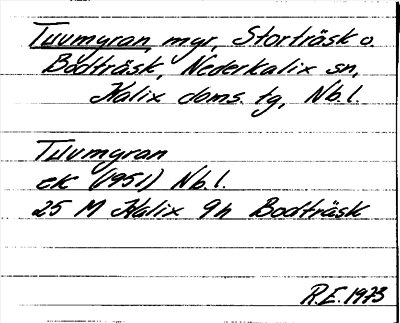 Tjuvmyran, myr, Storträsk o.
Bodträsk, Nederkalix sn,
Kalix doms. tg, Nb.l.
Tjuvmyran
ek (1951) Nb.l.
25 M Kalix 9h Bodträsk
R.E. 1973